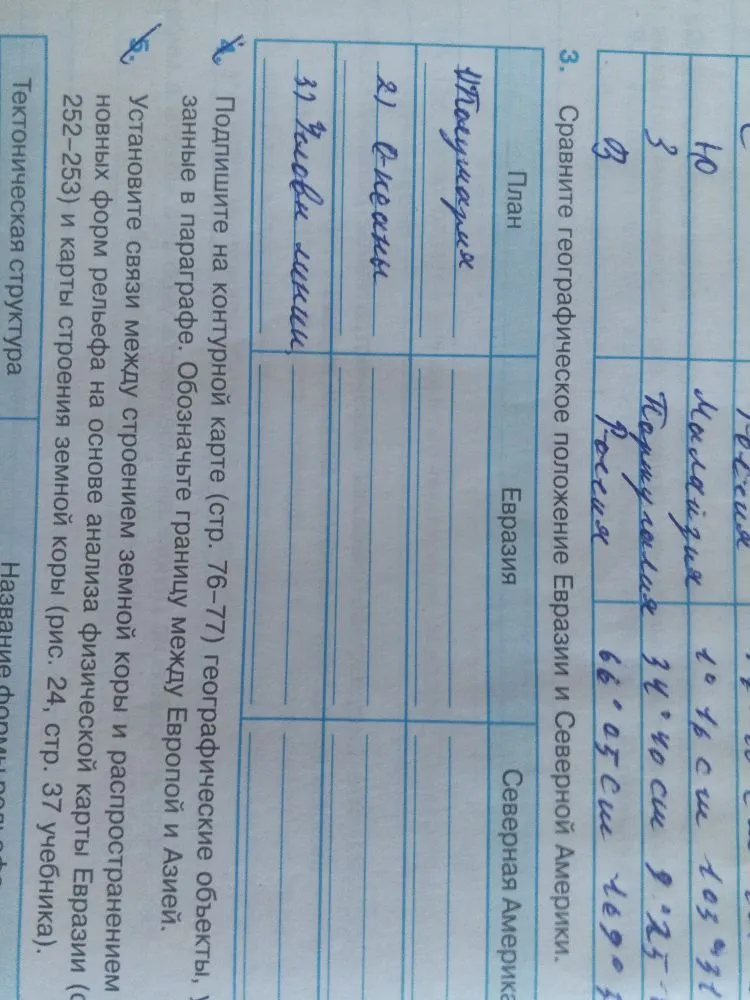 Ю Малайзия 1° 16 с ш 103°31
З Португалия 34°40 сш 9°25
Россия 66°05 сш 169°
3. Сравните географическое положение Евразии и Северной Америки.
План Евразия Северная Америка
1) Полушария
2) Океаны
3) Условн линии
4. Подпишите на контурной карте (стр. 76–77) географические объекты, у
занные в параграфе. Обозначьте границу между Европой и Азией.
5. Установите связи между строением земной коры и распространением
новных форм рельефа на основе анализа физической карты Евразии (с
252–253) и карты строения земной коры (рис. 24, стр. 37 учебника).
Тектоническая структура Название формы рельефа